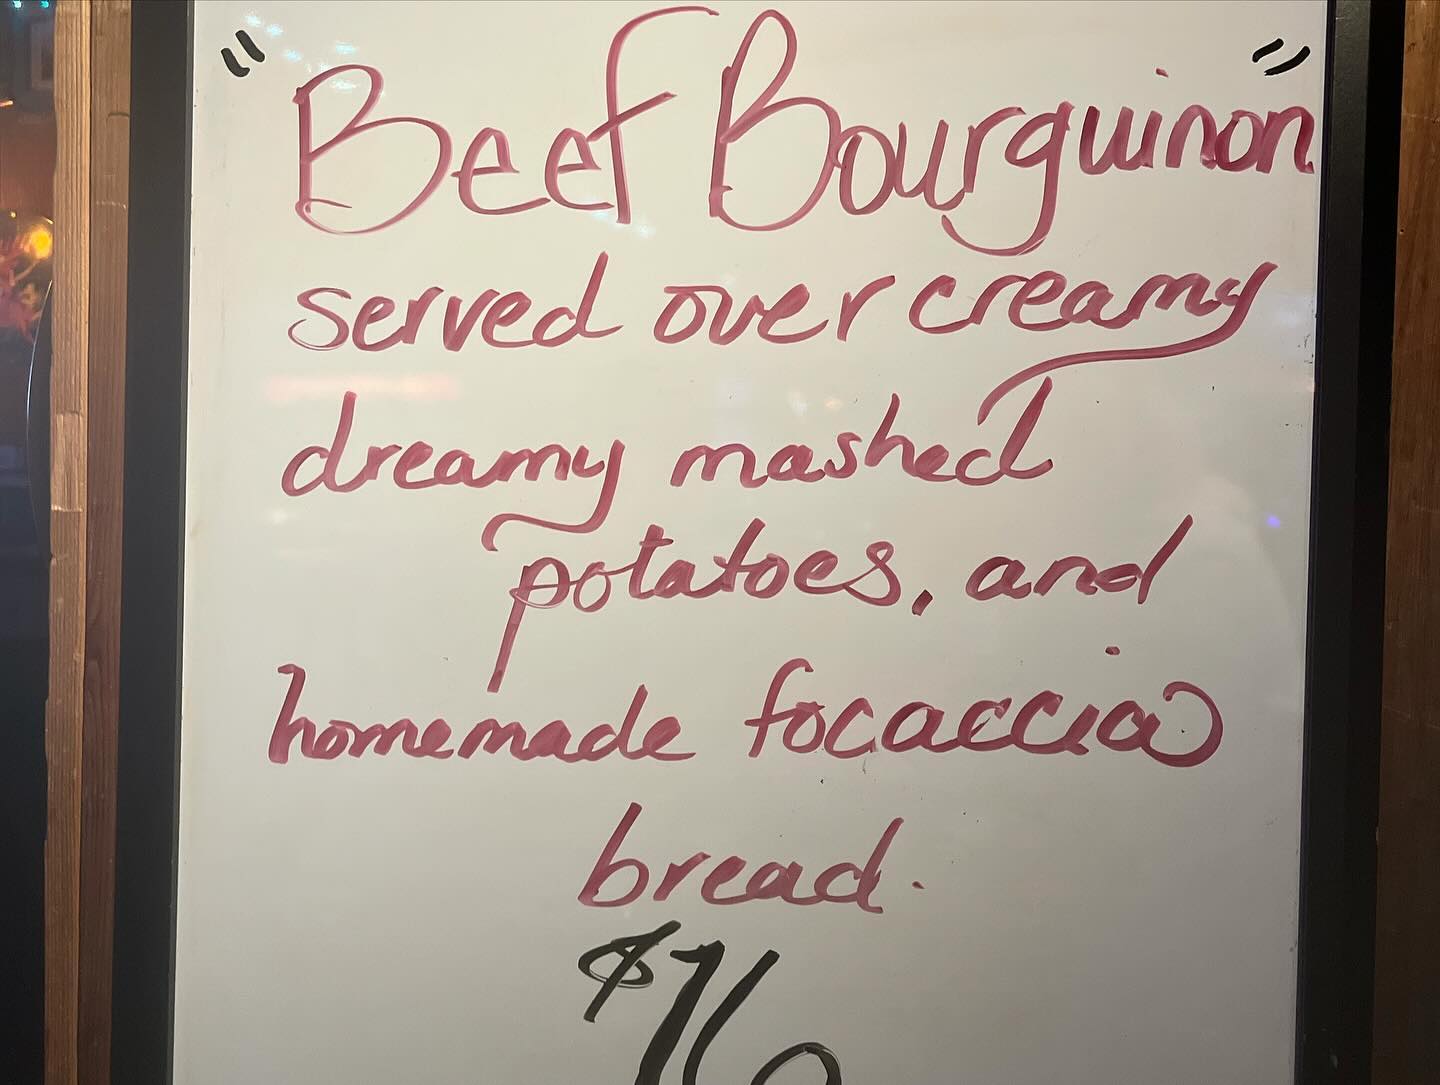 "Beef Bourguinon"
served over creamy
dreamy mashed
potatoes, and
homemade focaccia
bread.
$16